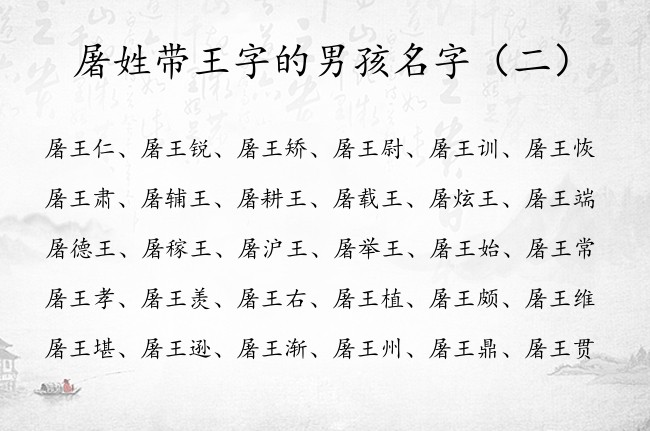 屠姓带王字的男孩名字（二）
屠王仁、屠王锐、屠王矫、屠王尉、屠王训、屠王恢
屠王肃、屠辅王、屠耕王、屠载王、屠炫王、屠王端
屠德王、屠稼王、屠沪王、屠举王、屠王始、屠王常
屠王孝、屠王羡、屠王右、屠王植、屠王颇、屠王维
屠王堪、屠王逊、屠王渐、屠王州、屠王鼎、屠王贯